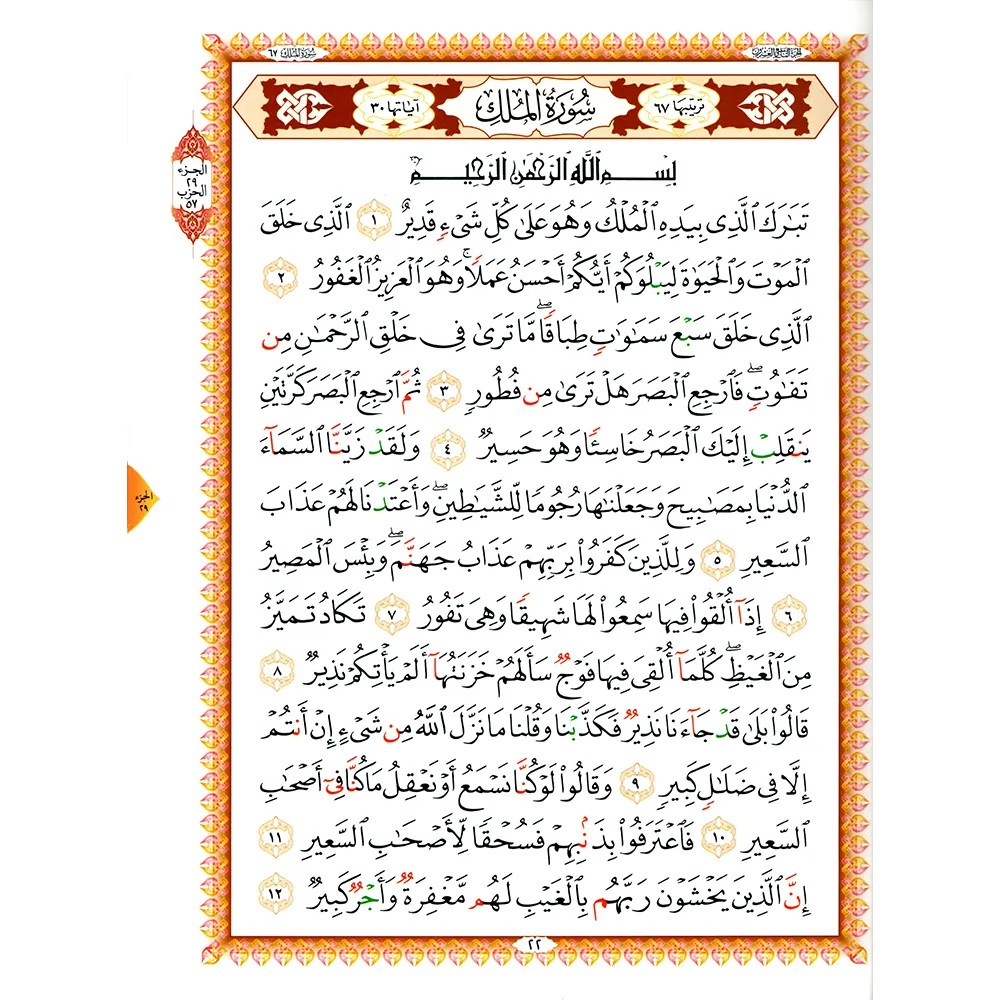 الجزء التاسع والعشرون
سورة الملك ٦٧
ترتيبها ٦٧
سُورَةُ المُلْكِ
آياتها ٣٠
الجزء
٢٩
الحزب
٥٧
بِسْمِ ٱللَّهِ ٱلرَّحْمَٰنِ ٱلرَّحِيمِ
تَبَٰرَكَ ٱلَّذِى بِيَدِهِ ٱلْمُلْكُ وَهُوَ عَلَىٰ كُلِّ شَىْءٍ قَدِيرٌ ١ ٱلَّذِى خَلَقَ
ٱلْمَوْتَ وَٱلْحَيَوٰةَ لِيَبْلُوَكُمْ أَيُّكُمْ أَحْسَنُ عَمَلًا ۚ وَهُوَ ٱلْعَزِيزُ ٱلْغَفُورُ ٢
ٱلَّذِى خَلَقَ سَبْعَ سَمَٰوَٰتٍ طِبَاقًا ۖ مَّا تَرَىٰ فِى خَلْقِ ٱلرَّحْمَٰنِ مِن
تَفَٰوُتٍ ۖ فَٱرْجِعِ ٱلْبَصَرَ هَلْ تَرَىٰ مِن فُطُورٍ ٣ ثُمَّ ٱرْجِعِ ٱلْبَصَرَ كَرَّتَيْنِ
يَنقَلِبْ إِلَيْكَ ٱلْبَصَرُ خَاسِئًا وَهُوَ حَسِيرٌ ٤ وَلَقَدْ زَيَّنَّا ٱلسَّمَآءَ
ٱلدُّنْيَا بِمَصَٰبِيحَ وَجَعَلْنَٰهَا رُجُومًا لِّلشَّيَٰطِينِ ۖ وَأَعْتَدْنَا لَهُمْ عَذَابَ
ٱلسَّعِيرِ ٥ وَلِلَّذِينَ كَفَرُوا۟ بِرَبِّهِمْ عَذَابُ جَهَنَّمَ ۖ وَبِئْسَ ٱلْمَصِيرُ
٦ إِذَآ أُلْقُوا۟ فِيهَا سَمِعُوا۟ لَهَا شَهِيقًا وَهِىَ تَفُورُ ٧ تَكَادُ تَمَيَّزُ
مِنَ ٱلْغَيْظِ ۖ كُلَّمَآ أُلْقِىَ فِيهَا فَوْجٌ سَأَلَهُمْ خَزَنَتُهَآ أَلَمْ يَأْتِكُمْ نَذِيرٌ ٨
قَالُوا۟ بَلَىٰ قَدْ جَآءَنَا نَذِيرٌ فَكَذَّبْنَا وَقُلْنَا مَا نَزَّلَ ٱللَّهُ مِن شَىْءٍ إِنْ أَنتُمْ
إِلَّا فِى ضَلَٰلٍ كَبِيرٍ ٩ وَقَالُوا۟ لَوْ كُنَّا نَسْمَعُ أَوْ نَعْقِلُ مَا كُنَّا فِىٓ أَصْحَٰبِ
ٱلسَّعِيرِ ١٠ فَٱعْتَرَفُوا۟ بِذَنۢبِهِمْ فَسُحْقًا لِّأَصْحَٰبِ ٱلسَّعِيرِ ١١
إِنَّ ٱلَّذِينَ يَخْشَوْنَ رَبَّهُم بِٱلْغَيْبِ لَهُم مَّغْفِرَةٌ وَأَجْرٌ كَبِيرٌ ١٢
الجزء
٢٩
٢٢